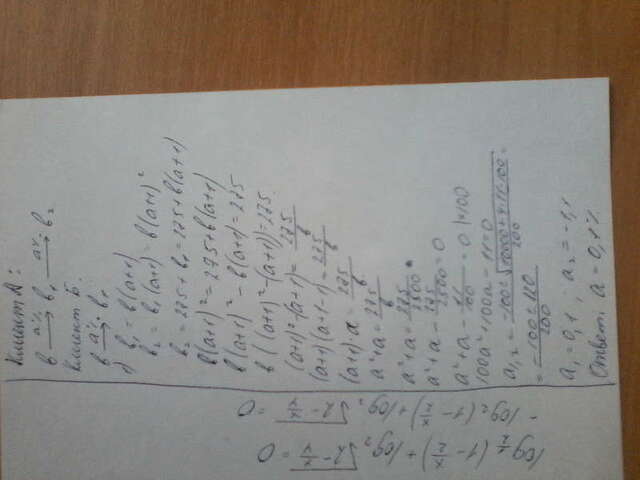 Клиент А:
b →a% b₁ →a% b₂
Клиент Б.
b →a% b₁
1) b₁ = b(a+1)
b₂ = b₁(a+1) = b(a+1)²
b₂ = 275 + b₁ = 275 + b(a+1)
b(a+1)² = 275 + b(a+1)
b(a+1)² - b(a+1) = 275
b((a+1)² - (a+1)) = 275.
(a+1)² - (a+1) = 275/b
(a+1)(a+1-1) = 275/b
(a+1)·a = 275/b
a² + a = 275/b
a² + a = 275/2500
a² + a - 275/2500 = 0
a² + a - 11/100 = 0 |·100
100a² + 100a - 11 = 0
a₁,₂ = (-100 ± √(10000 + 4·11·100))/200 =
= (-100 ± 120)/200
a₁ = 0,1 ; a₂ = -1,1
Ответ: a = 0,1%